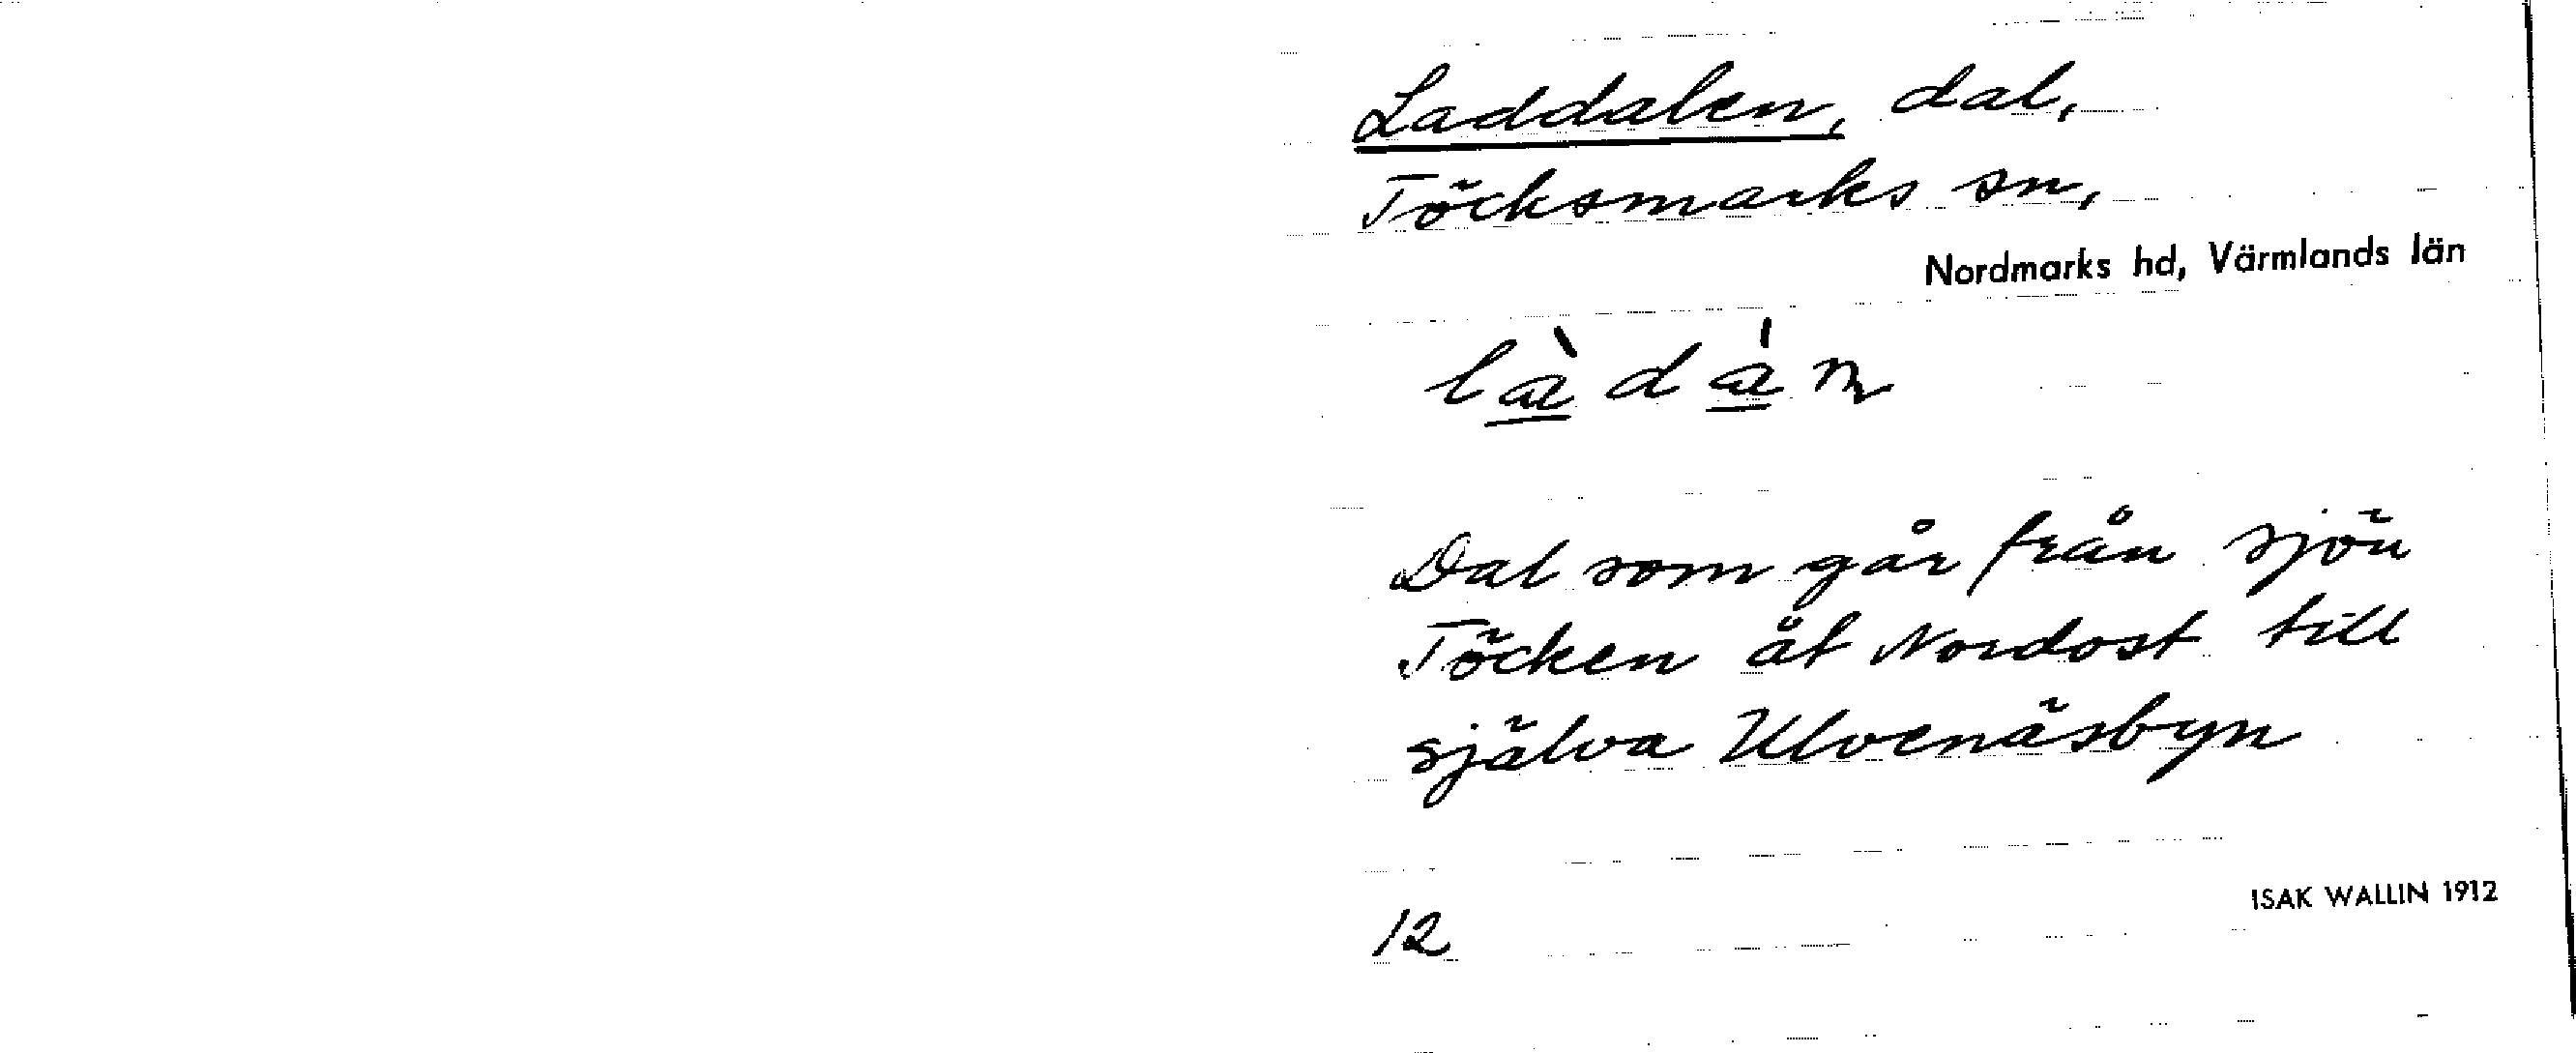 Laddalen, dal,
Töcksmarks sn,
Nordmarks hd, Värmlands län
Dal som går från sjön
Töcken åt Nordost till
själva Ulvenäsbyn
ISAK WALLIN 1912
12